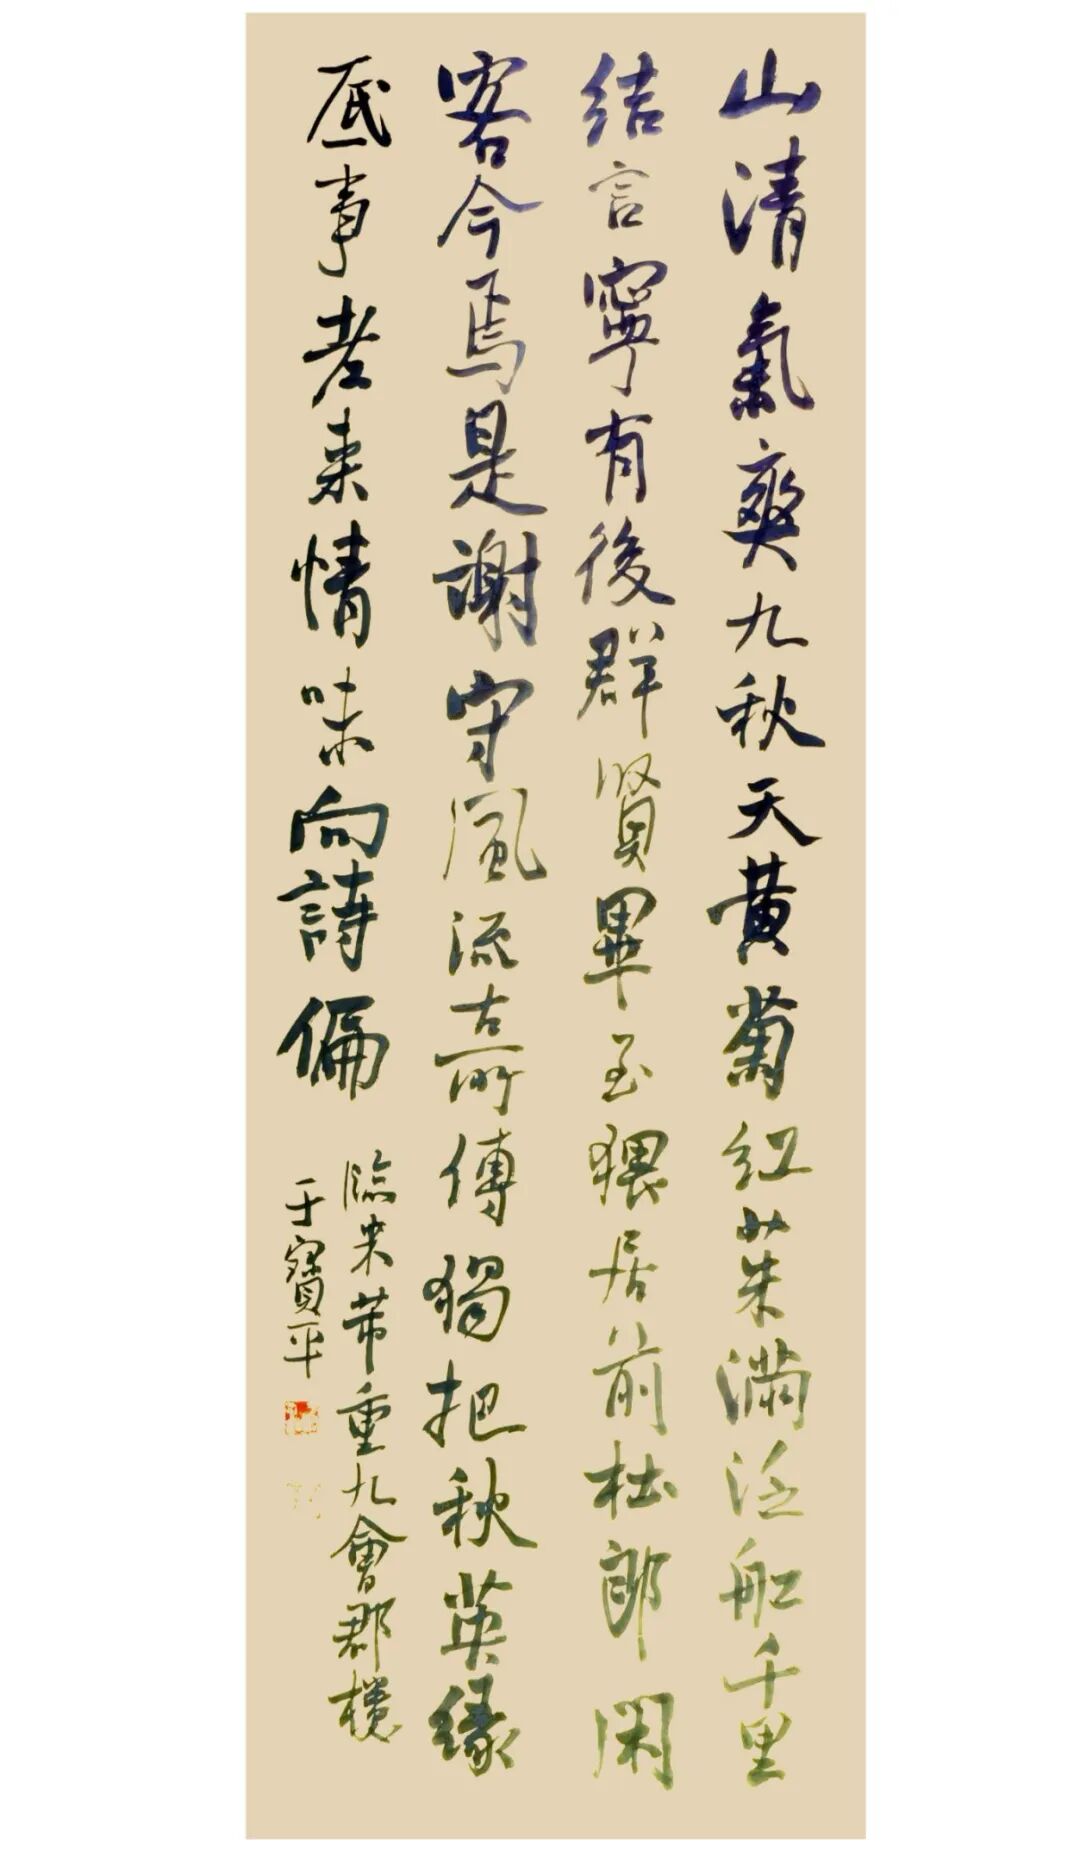 山清氣爽九秋天黄菊紅茱滿泛船千里
結言寧有後群賢畢至猥居前杜郎閑
客今焉是謝守風流古所傳獨把秋英緣
底事老来情味向詩偏
臨米芾重九會郡樓
于寶平